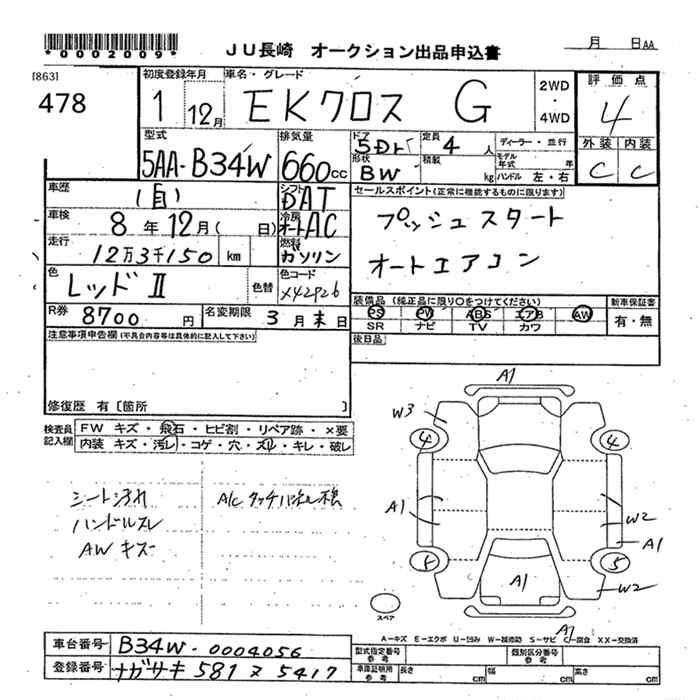 *0002009*
JU長崎 オークション出品申込書
月 日AA
[863]
478
初度登録年月
1 12月
車名・グレード
EKクロス G
2WD
・
4WD
評価点
4
型式
5AA-B34W
排気量
660cc
ドア
5Dr
定員
4人
形状
BW
積載
kg
ディーラー・並行
モデル年式 年
ハンドル 左・右
外装 内装
C C
車歴
(自)
シフト
DAT
セールスポイント(正常に機能するものに限ります)
プッシュスタート
オートエアコン
車検
8年12月( 日)
冷房
オートAC
走行
12万3千150 km
燃料
ガソリン
色
レッドⅡ
色替
色コード
X42P26
R券
8700円
名変期限
3月末日
装備品(純正品に限り○をつけてください)
PS PW ABS エアB AW
SR ナビ TV カワ
新車保証書
有・無
後日品
注意事項申告欄(不具合内容等は具体的に記入して下さい)
修復歴 有〔箇所 〕
検査員記入欄
FW キズ・飛石・ヒビ割・リペア跡・×要
内装 キズ・汚レ・コゲ・穴・スレ・キレ・破レ
シート汚れ
ハンドルスレ
AWキズ
A/Cタッチパネル
A1
W3
4 4
A1
W2
A1
5
A1
W2
スペア
A1
A-キズ E-エクボ U-凹み W-補修跡 S-サビ C-腐食 XX-交換済
車台番号
B34W-0004056
登録番号
ナガサキ 581 ス 5417
型式指定番号
参考
類別区分番号
参考
車庫証明用
参考
長さ cm
幅 cm
高さ cm